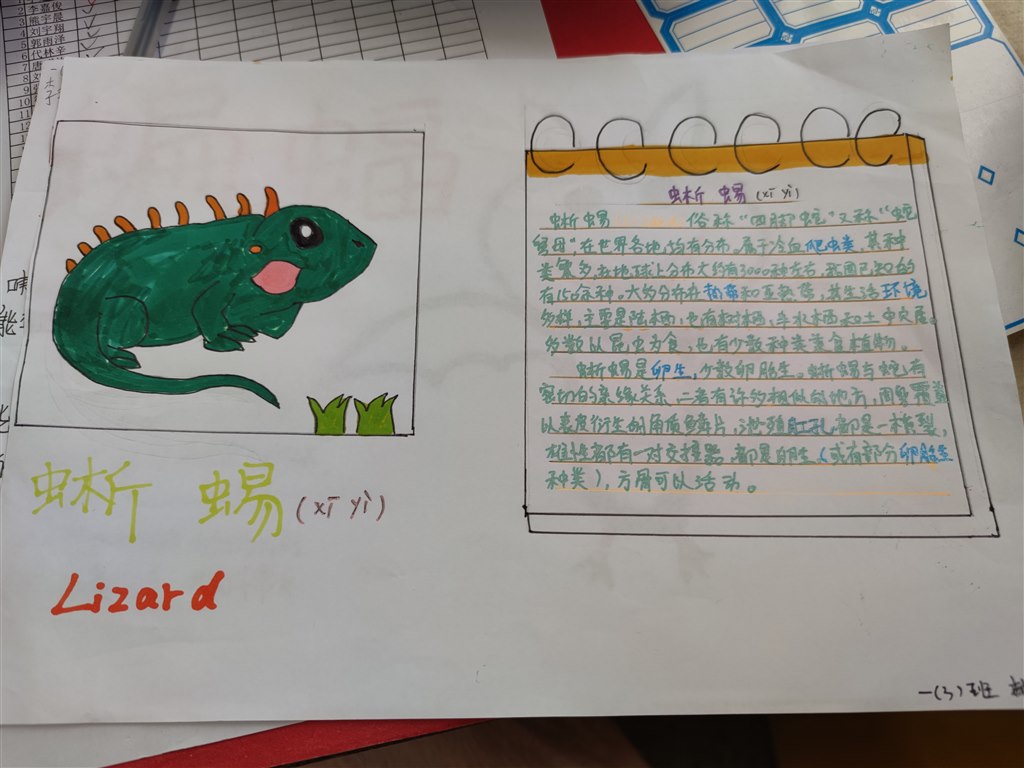 李嘉俊
熊宇晨
刘宇翔
郭雨泽
代林辛
蜥蜴(xī yì)
Lizard
蜥蜴(xī yì)
蜥蜴 俗称“四脚蛇”又称“蛇
舅母”在世界各地均有分布。属于冷血爬虫类,其种
类繁多,在地球上分布大约有3000种左右,我国已知的
有150余种。大多分布在热带和亚热带,其生活环境
多样,主要是陆栖,也有树栖,半水栖和土中穴居。
多数以昆虫为食,也有少数种类兼食植物。
蜥蜴是卵生,少数卵胎生。蜥蜴与蛇有
密切的亲缘关系,二者有许多相似的地方,周身覆盖
以表皮衍生的角质鳞片,泄殖肛孔都是一横裂,
雄性都有一对交接器,都是卵生(或有部分卵胎生
种类),方骨可以活动。
一(3)班